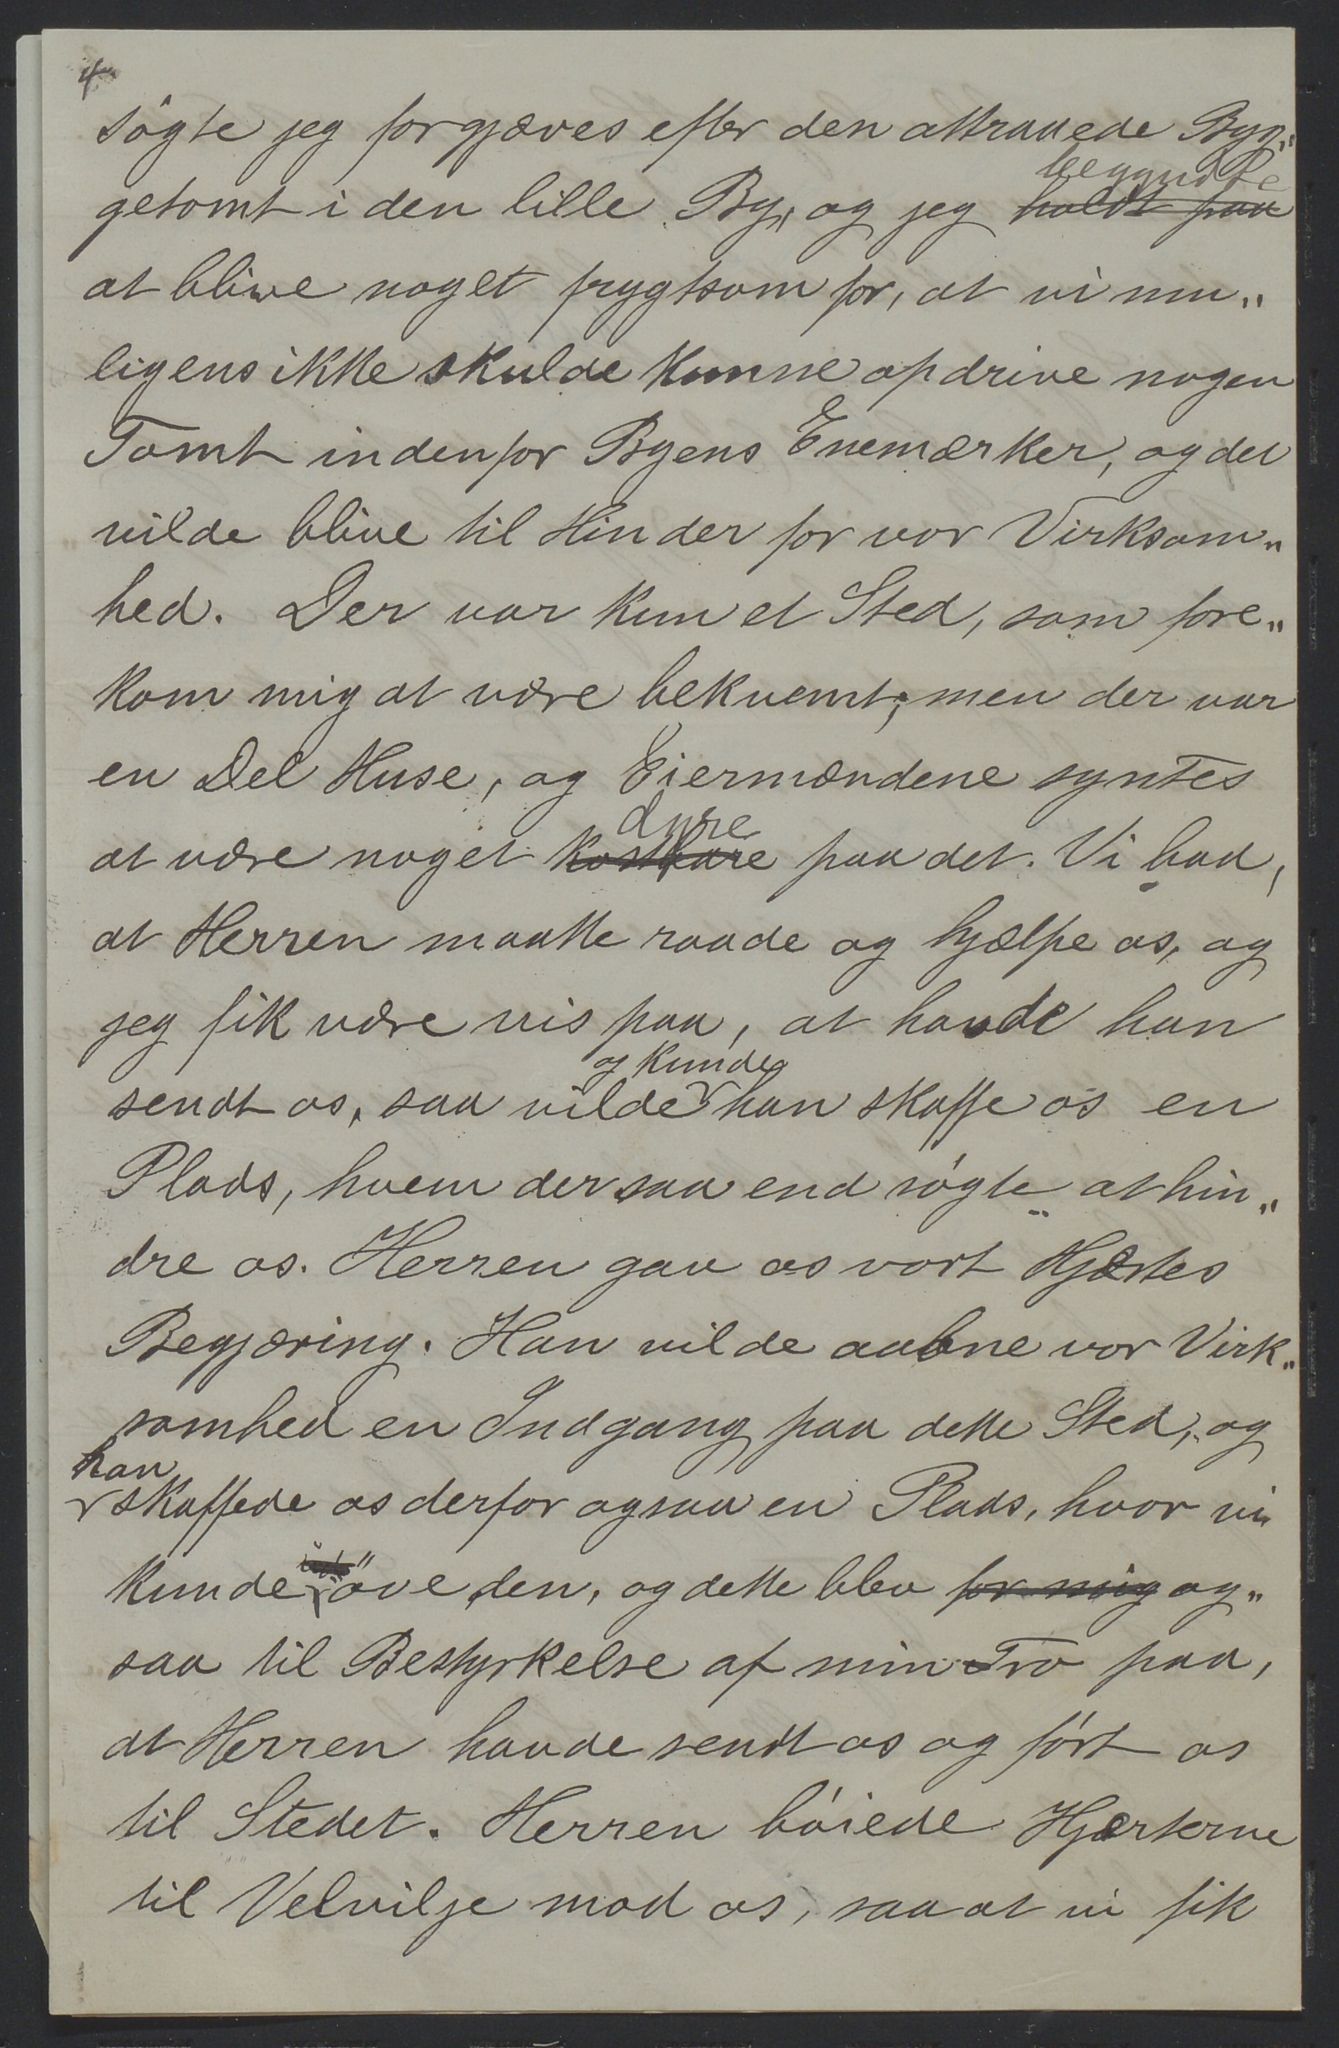 4
søgte jeg forgjæves efter den attraaede Byg„
begyndte
getomt i den lille By, og jeg holdt paa
at blive noget frygtsom for, at vi mu„
ligens ikke skulde kunne opdrive nogen
Tomt indenfor Byens Enemærker, og det
vilde blive til Hinder for vor Virksom„
hed. Der var kun et Sted, som fore„
kom mig at være bekvemt; men der var
en Del Huse, og Eiermændene syntes
dyre
at være noget kostbare paa det. Vi bad,
at Herren maatte raade og hjælpe os, og
jeg fik være vis paa, at havde han
og kunde
sendt os, saa vilde han skaffe os en
Plads, hvem der saa end søgte at hin„
dre os. Herren gav os vort Hjertes
Begjæring. Han vilde aabne vor Virk„
somhed en Indgang paa dette Sted, og
han
skaffede os derfor ogsaa en Plads, hvor vi
kunde øve den, og dette blev for mig og„
saa til Bestyrkelse af min Tro paa,
at Herren havde sendt os og ført os
til Stedet. Herren bøiede Hjerterne
til Velvilje mod os, saa at vi fik